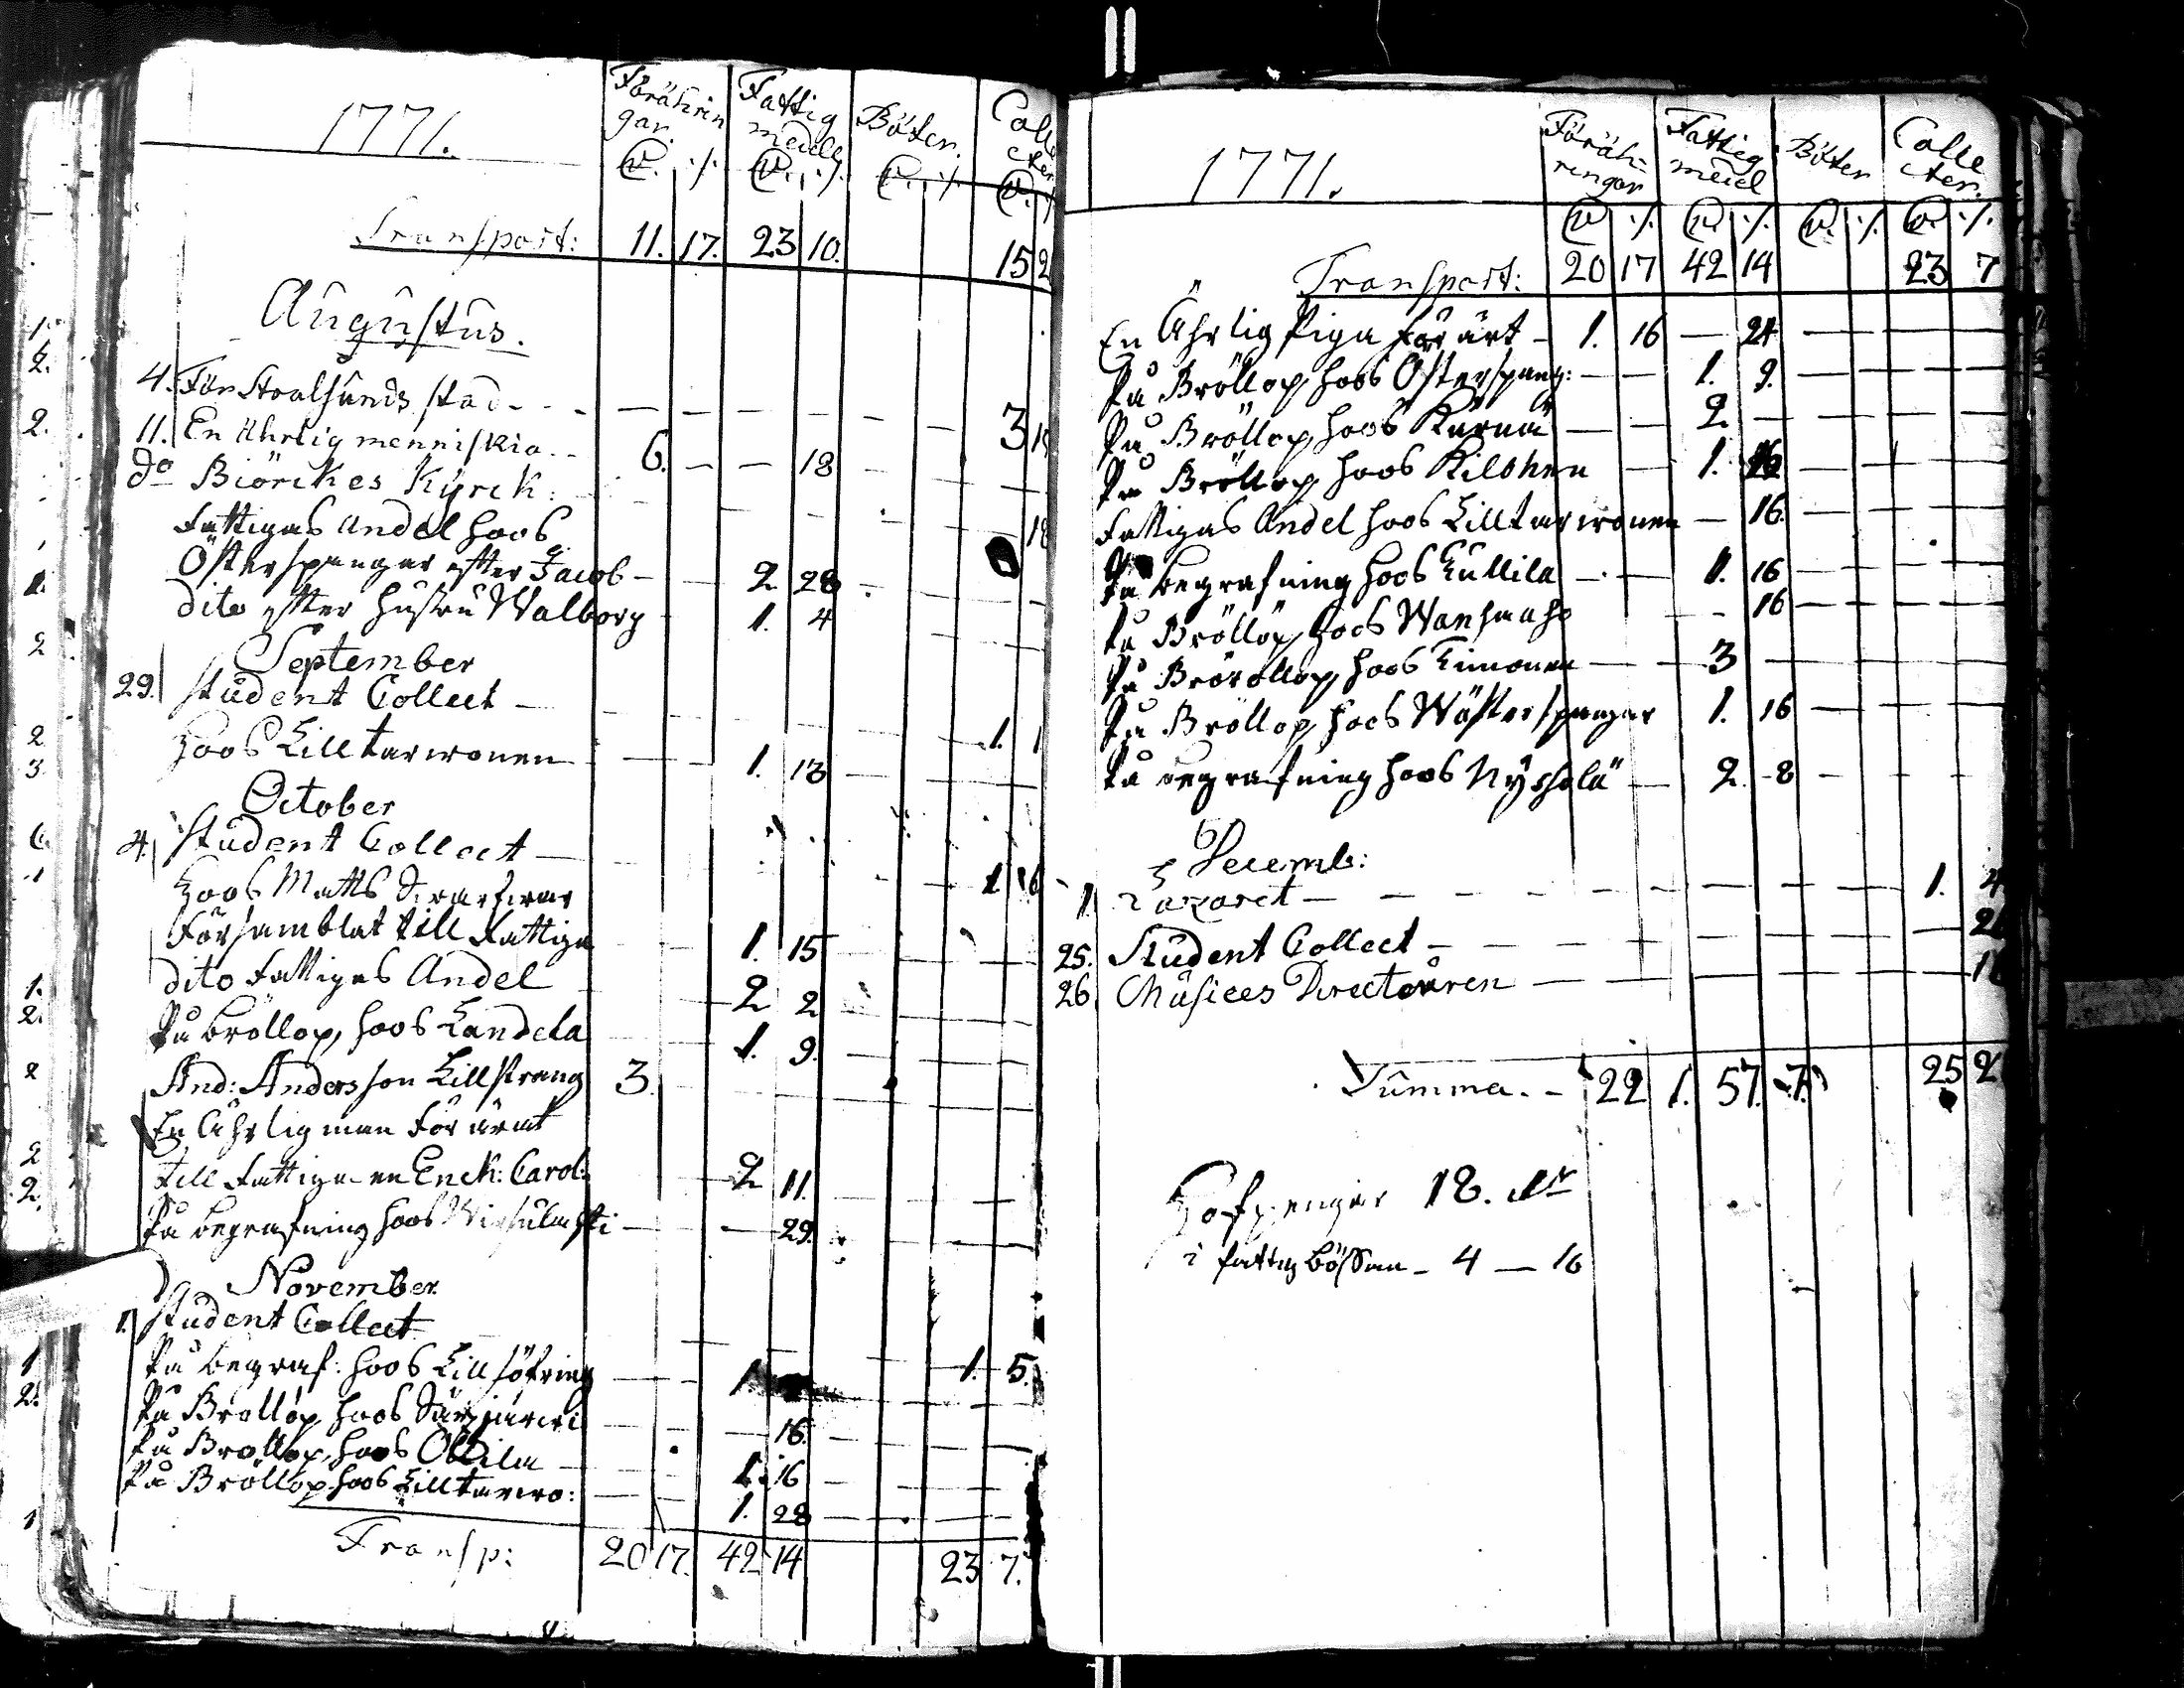 1771.
Förährin
gar.
Fattig
medell
Böter.
Colle
cter
Transport: 11. 17. 23 10. 15 2
Augustus.
4. För Stralsunds stad - - - 3 18
11. En Ährlig menniskia - - 6. - - 18
do Biörckes Kyrck: 18
Fattigas Andel hoos
Österspangar efter Jacob - 2 28
dito efter hustru Walborg 1. 4
September
29. Student Collect - 1. 1
hoos Lilltarwonen 1. 13
October
4. Student Collect - 1 16
hoos Matts
Församblat till Fattiga 1. 15
dito Fattigas Andel 2 2
På bröllop, hoos Landela 1. 9.
And: Andersson Lillstrang 3.
En Ährlig man för ärat
till Fattiga en Enck: Carol: 2 11.
På begrafning hoos 29.
November
1. Student Collect 1. 5.
På begraf: hoos Lillsöfring 1.
På Bröllop hoos 16.
På Bröllop, hoos Ollila 1. 16
På Bröllop hoos Lilltarwo: 1. 28
Transp: 20 17. 42 14 23 7.
1771.
Föräh-
ringar
Fattig
medel
Böter
Colle
cter.
Transport: 20 17 42 14 23 7
En Ährlig Piga för ärt - 1. 16 - 24
På Bröllop, hoos Österspang: - 1. 9.
På Bröllop, hoos Kärnä - 2. -
På Bröllop hoos Kilohnen - 1.
Fattigas Andel hoos Lilltarwonen - 16.
På begrafning hoos Kullila - 1. 16
På Bröllop, hoos Wanhaaho - 16
På Brörollop, hoos Timonen - 3 -
På Bröllop, hoos Wästerspangar 1. 16
På begrafning hoos Nyyssölä - 2. 8
Decemb:
1. Lazaret - 1. 4
25. Student Collect -
26. Musices Directeuren -
Summa. - 22 1. 57. 7. 25 2
Hofpengar 18. dr
i fattig bössan - 4 - 16